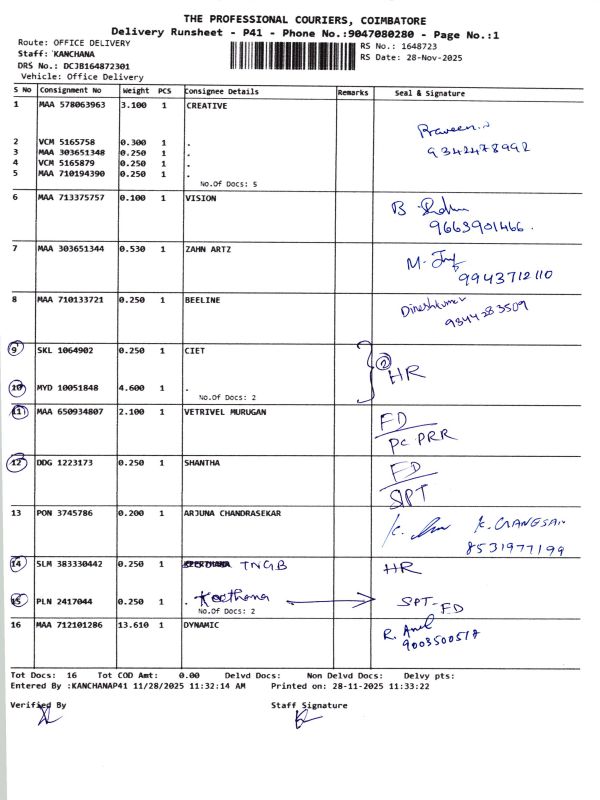 THE PROFESSIONAL COURIERS, COIMBATORE
Delivery Runsheet - P41 - Phone No.:9047080280 - Page No.:1
Route: OFFICE DELIVERY
Staff: KANCHANA
DRS No.: DCJB164872301
Vehicle: Office Delivery
RS No.: 1648723
RS Date: 28-Nov-2025
S No Consignment No Weight PCS Consignee Details Remarks Seal & Signature
1 MAA 578063963 3.100 1 CREATIVE
Praveen
9342478992
2 VCM 5165758 0.300 1 .
3 MAA 303651348 0.250 1 .
4 VCM 5165879 0.250 1 .
5 MAA 710194390 0.250 1 .
No.Of Docs: 5
6 MAA 713375757 0.100 1 VISION
B.
9663901466.
7 MAA 303651344 0.530 1 ZAHN ARTZ
M.
9943712110
8 MAA 710133721 0.250 1 BEELINE
Dineshkumar
9344283509
9 SKL 1064902 0.250 1 CIET
2 HR
10 MYD 10051848 4.600 1 .
No.Of Docs: 2
11 MAA 650934807 2.100 1 VETRIVEL MURUGAN
FD
PC PRR
12 DDG 1223173 0.250 1 SHANTHA
FD
SPT
13 PON 3745786 0.200 1 ARJUNA CHANDRASEKAR
K.
8531977199
14 SLM 383330442 0.250 1 TNGB HR
15 PLN 2417044 0.250 1 . Keethana SPT-FD
No.Of Docs: 2
16 MAA 712101286 13.610 1 DYNAMIC
R.
9003500517
Tot Docs: 16 Tot COD Amt: 0.00 Delvd Docs: Non Delvd Docs: Delvy pts:
Entered By :KANCHANAP41 11/28/2025 11:32:14 AM Printed on: 28-11-2025 11:33:22
Verified By Staff Signature